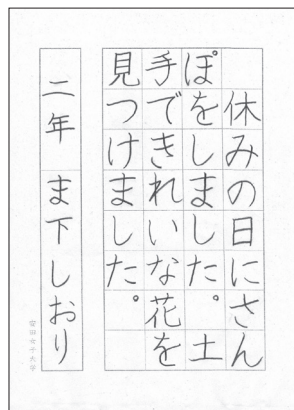 休みの日にさん
ぽをしました。土
手できれいな花を
見つけました。
二年 ま下 しおり
安田女子大学